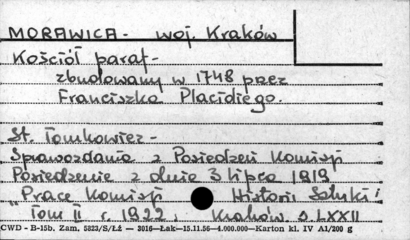 MORAWICA - woj. Kraków
Kościół paraf-
zbudowany w 1748 przez
Franciszka Placidiego.
St. Tomkowicz -
Sprawozdania z Posiedzeń Komisji
Posiedzenie z dnia 3 lipca 1919
"Prace Komisji Historii Sztuki"
Tom II r. 1922. Kraków. s. LXXII
CWD - B-15b. Zam. 5823/S/Łż — 2016—Łak—15.11.56—4.000.000—Karton kl. IV A1/200 g